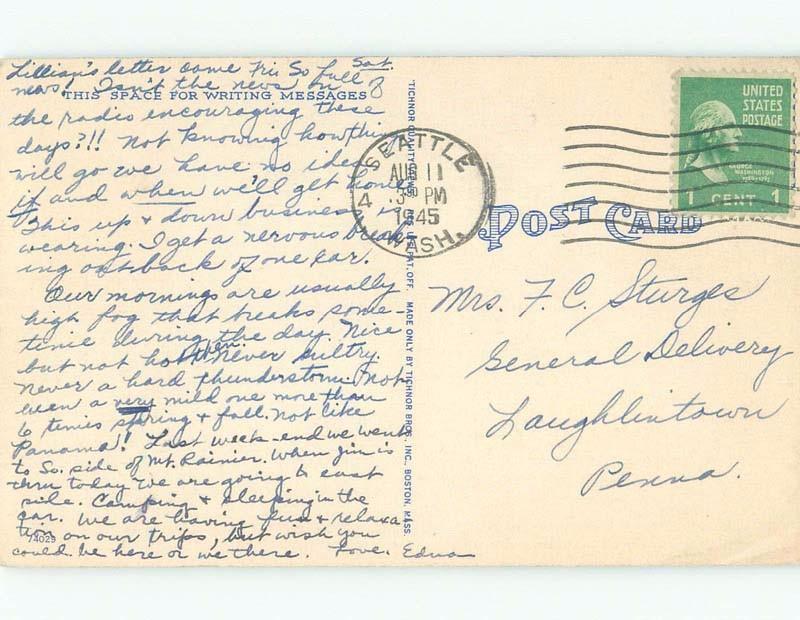 Sat.
Lillian's letter came Fri. So full of
news! Isn't the news on
THIS SPACE FOR WRITING MESSAGES
the radio encouraging these
days?!! Not knowing how thin
will go we have no idea
if and when we'll get home.
This up + down business is
wearing. I get a nervous break
ing out back of one ear.
Our mornings are usually
high fog that breaks some-
time during the day. Nice
but not hot then. Never sultry.
Never a hard thunderstorm. Not
even a very mild one more than
6 times spring + fall. Not like
Panama! Last week-end we went
to So. side of Mt. Rainier. When Jim is
thru today we are going to east
side. Camping + sleeping in the
car. We are having fun + relaxa
tion on our trips, but wish you
74029
could be here or we there. Love. Edna
MADE ONLY BY TICHNOR BROS. INC., BOSTON, MASS.
SEATTLE
AUG 11
3 30 PM
1945
WASH.
4
UNITED
STATES
POSTAGE
GEORGE
WASHINGTON
1789-1797
1 CENT 1
POST CARD
Mrs. F. C. Sturges
General Delivery
Laughlintown
Penna.